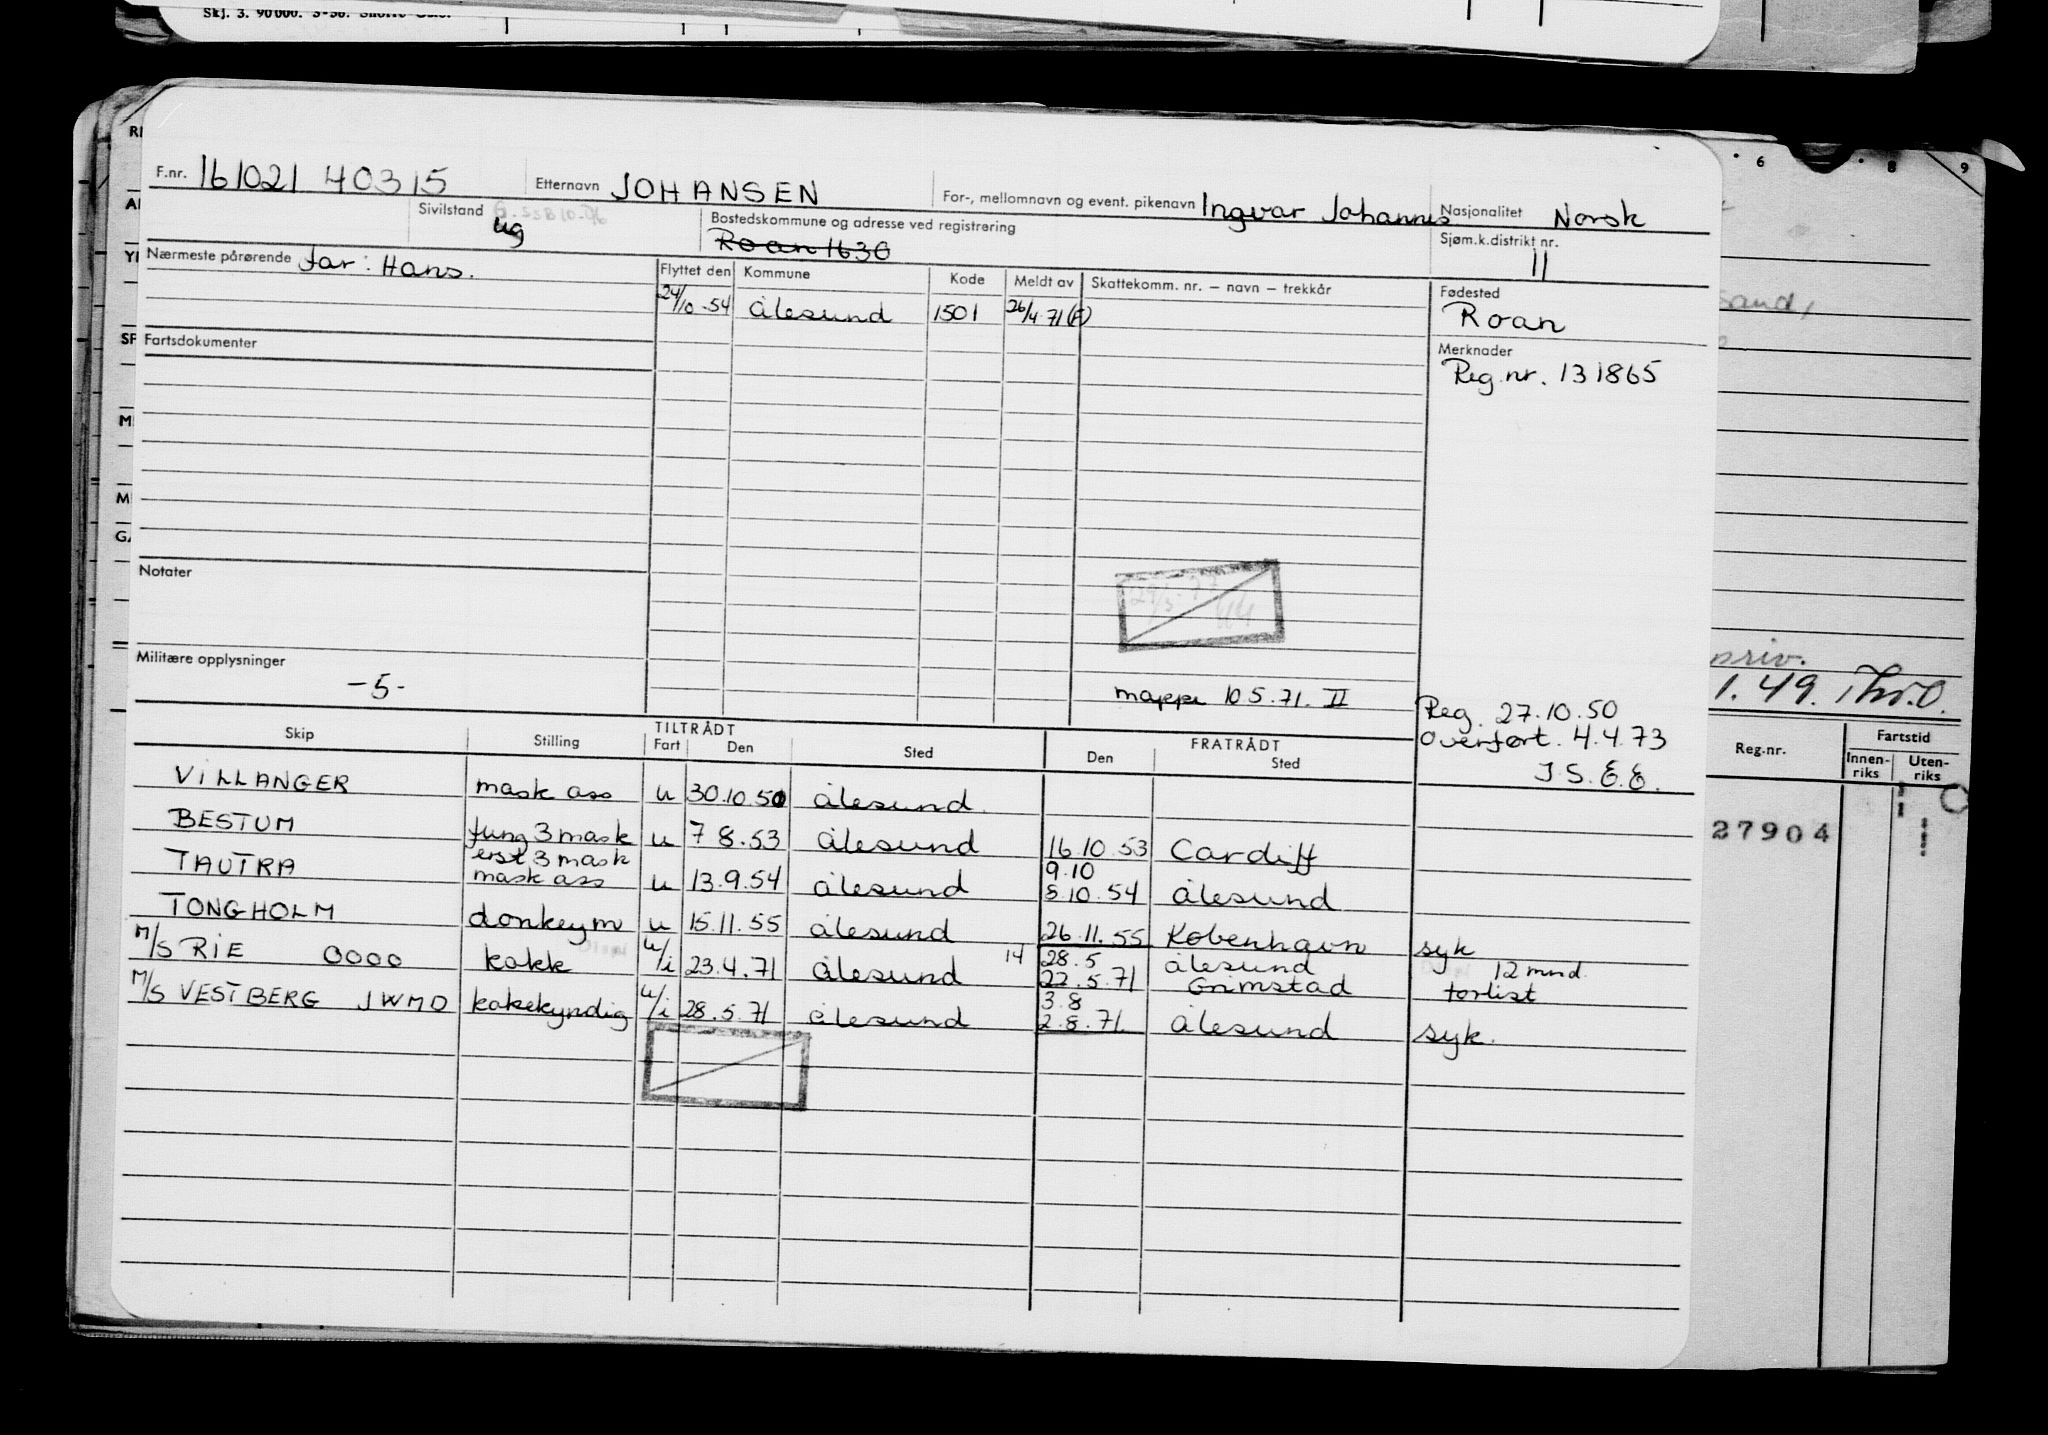 Skj. 3. 90000. 3-50.
F.nr. 161021 40315 Etternavn JOHANSEN For-, mellomnavn og event. pikenavn Ingvar Johannes Nasjonalitet Norsk
Sivilstand ug Bostedskommune og adresse ved registrering Roan 1630 Sjøm.k.distrikt nr. 11
Nærmeste pårørende far: Hans. Flyttet den Kommune Kode Meldt av Skattekomm. nr. – navn – trekkår Fødested
24/10-54 Ålesund 1501 26/4 71 (F) Roan
Fartsdokumenter Merknader
Reg.nr. 131865
Notater
Militære opplysninger
-5-
mappe 10 5.71. II
Reg. 27.10.50
Overført. 4.4.73
J.S.E.E.
Skip Stilling TILTRÅDT Fart Den Sted FRATRÅDT Den Sted
VILLANGER mask ass u 30.10.50 Ålesund
BESTUM fung 3 mask u 7 8.53 Ålesund 16.10 53 Cardiff
erst 3 mask 9.10
TAUTRA mask ass u 13.9.54 Ålesund 8 10.54 Ålesund
TONGHOLM donkeym u 15.11.55 Ålesund 26.11.55 København syk
M/S RIE OOOO kokk u/i 23.4.71 Ålesund 14 28.5 Ålesund 12 mnd.
22.5.71 Grimstad forlist
M/S VESTBERG JWMO kokekyndig u/i 28.5.71 Ålesund 3.8
2.8.71. Ålesund syk.
6 8 9
sand,
priv.
1.49.
Reg.nr. Fartstid
Innen-riks Uten-riks
27904